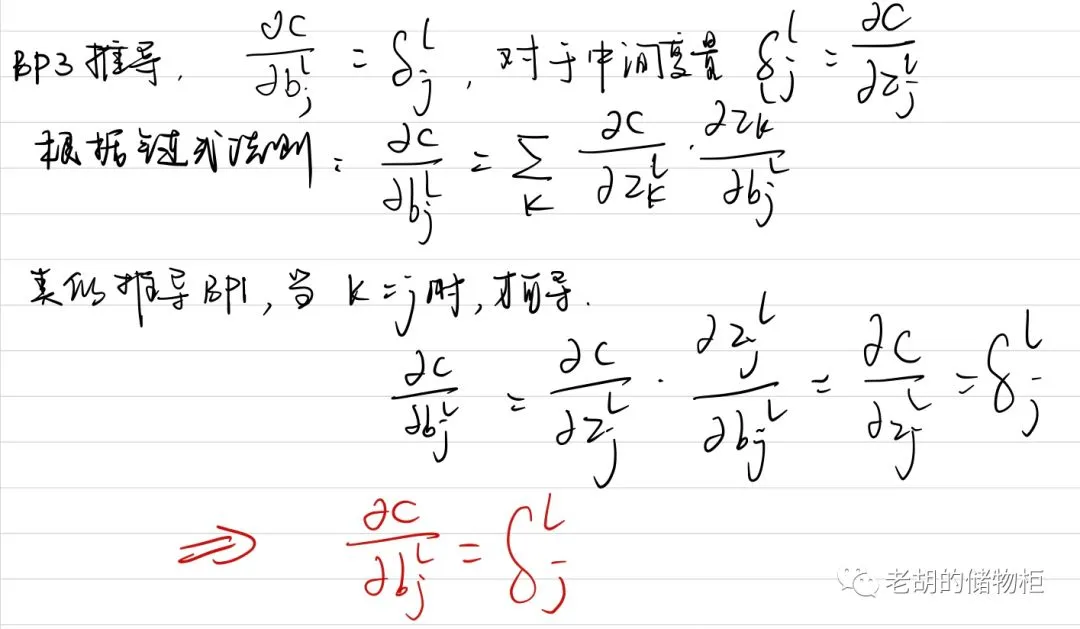 BP3推导. ∂C/∂b_j^l = δ_j^l, 对于中间变量 δ_j^l = ∂C/∂z_j^l
根据链式法则: ∂C/∂b_j^l = Σ_k ∂C/∂z_k^l · ∂z_k^l/∂b_j^l
类似推导BP1, 当 k=j 时, 才可导.
∂C/∂b_j^l = ∂C/∂z_j^l · ∂z_j^l/∂b_j^l = ∂C/∂z_j^l = δ_j^l
⇒ ∂C/∂b_j^l = δ_j^l
老胡的储物柜